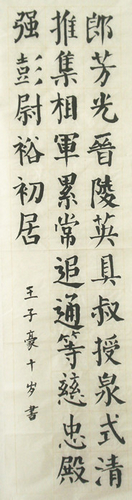 郎芳光晉陵英具叔授泉式清
推集相軍累常追通等慈忠殿
强彭尉裕初居
王子豪十岁書